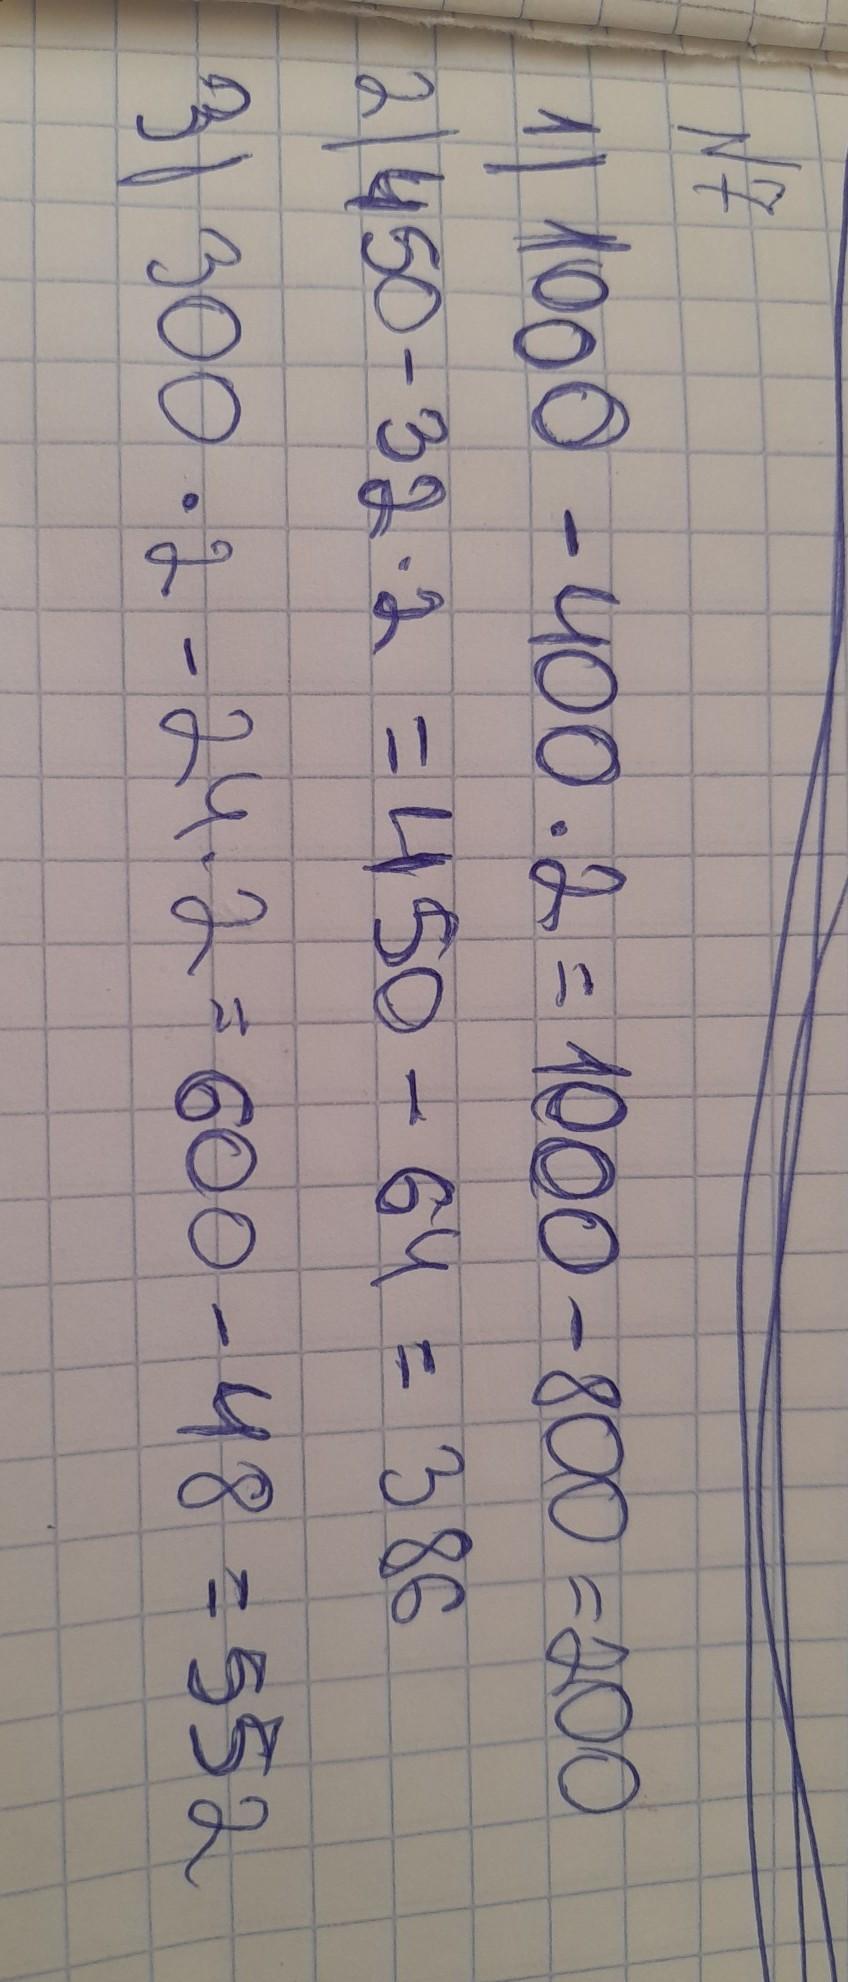 N7
1) 1000 - 400 · 2 = 1000 - 800 = 200
2) 450 - 32 · 2 = 450 - 64 = 386
3) 300 · 2 - 24 · 2 = 600 - 48 = 552